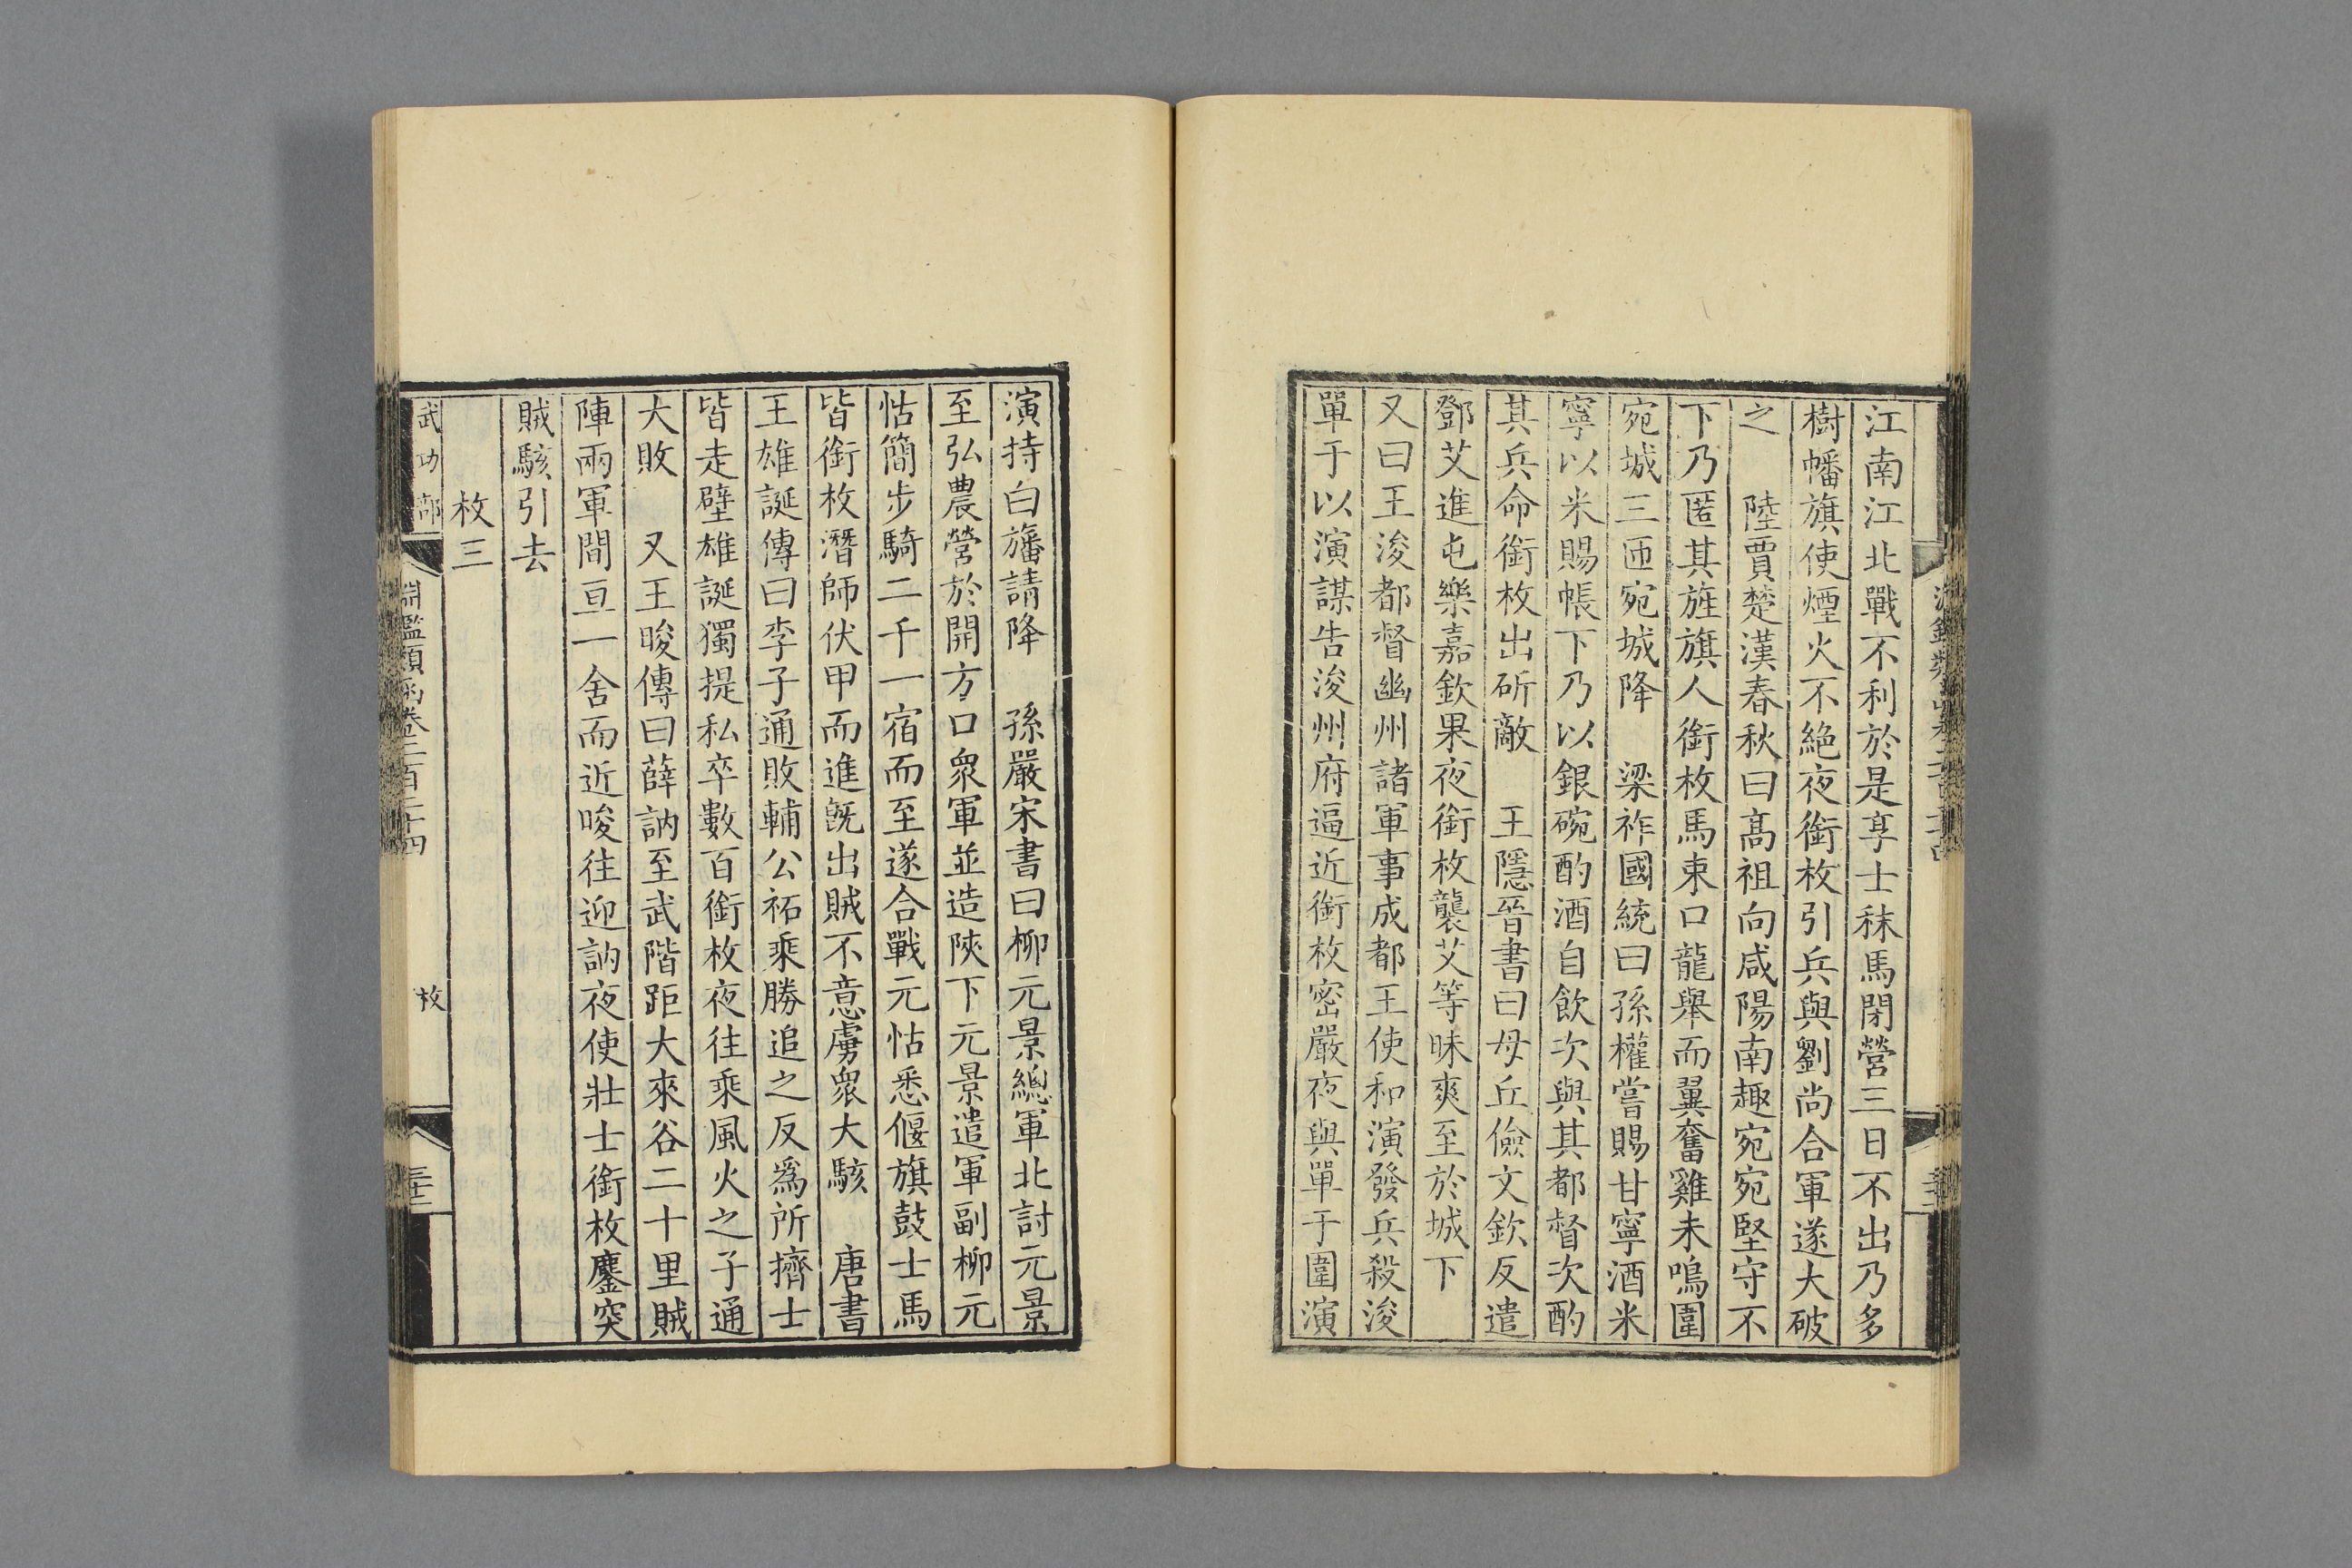 江南江北戰不利於是享士秣馬閉營三日不出乃多
樹幡旗使煙火不絶夜銜枚引兵與劉尚合軍遂大破
之　陸賈楚漢春秋曰高祖向咸陽南趣宛宛堅守不
下乃匿其旌旗人銜枚馬束口龍舉而翼奮雞未鳴圍
宛城三匝宛城降　梁祚國統曰孫權嘗賜甘寧酒米
寧以米賜帳下乃以銀碗酌酒自飲次與其都督次酌
其兵命銜枚出斫敵　王隱晉書曰毋丘儉文欽反遣
鄧艾進屯樂嘉欽果夜銜枚襲艾等昧爽至於城下
又曰王浚都督幽州諸軍事成都王使和演發兵殺浚
單于以演謀告浚州府逼近銜枚密嚴夜與單于圍演
演持白旛請降　孫嚴宋書曰柳元景總軍北討元景
至弘農營於開方口衆軍並造陝下元景遣軍副柳元
怙簡步騎二千一宿而至遂合戰元怙悉偃旗鼓士馬
皆銜枚潛師伏甲而進旣出賊不意虜衆大駭　唐書
王雄誕傳曰李子通敗輔公祏乘勝追之反爲所擠士
皆走壁雄誕獨提私卒數百銜枚夜往乘風火之子通
大敗　又王晙傳曰薛訥至武階距大來谷二十里賊
陣兩軍間亘一舍而近晙往迎訥夜使壯士銜枚鏖突
賊駭引去
枚三
武功部　淵鑑類函卷二百二十四　枚